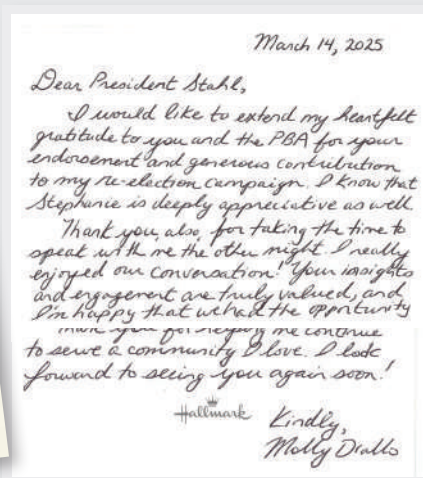 March 14, 2025
Dear President Stahl,
I would like to extend my heartfelt
gratitude to you and the PBA for your
endorsement and generous contribution
to my re-election campaign. I know that
Stephanie is deeply appreciative as well.
Thank you, also, for taking the time to
speak with me the other night. I really
enjoyed our conversation! Your insights
and engagement are truly valued, and
I'm happy that we had the opportunity
you for helping me continue
to serve a community I love. I look
forward to seeing you again soon!
Hallmark
Kindly,
Molly Drallo